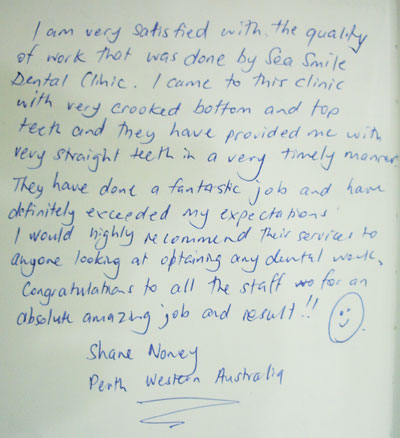 I am very satisfied with the quality
of work that was done by Sea Smile
Dental Clinic. I came to this clinic
with very crooked bottom and top
teeth and they have provided me with
very straight teeth in a very timely manner
They have done a fantastic job and have
definitely exceeded my expectations.
I would highly recommend their services to
anyone looking at optaining any dental work.
Congratulations to all the staff for an
absolute amazing job and result!!
Shane
Perth Western Australia